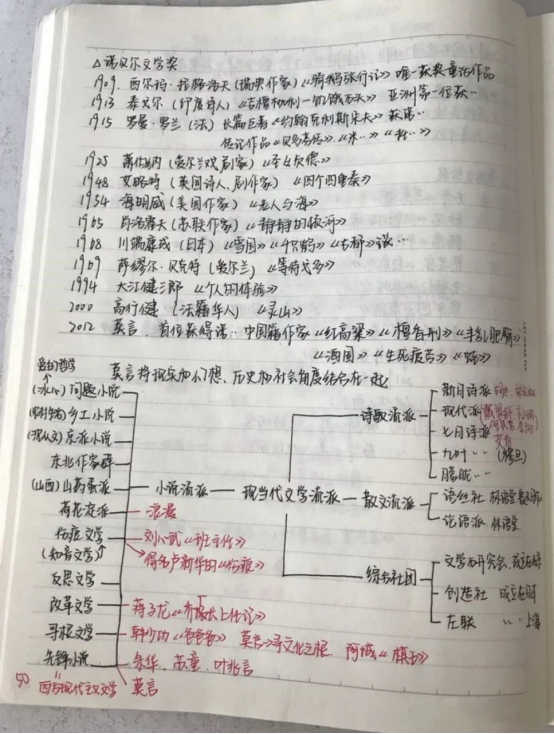 △诺贝尔文学奖
1909. 西尔玛·拉格洛夫(瑞典作家)《骑鹅旅行记》唯一获奖童话作品
1913 泰戈尔(印度诗人)《吉檀枷利一饥饿石头》亚洲第一位获…
1915 罗曼·罗兰(法)长篇巨著《约翰克利斯朵夫》获诺…
传记作品《贝多芬传》《米…》《托…》
1925 萧伯纳(爱尔兰戏剧家)《圣女贞德》
1948 艾略特(英国诗人、剧作家)《四个四重奏》
1954 海明威(美国作家)《老人与海》
1965 肖洛霍夫(苏联作家)《静静的顿河》
1968 川端康成(日本)《雪国》《千只鹤》《古都》
1969 萨缪尔·贝克特(爱尔兰)《等待戈多》
1994 大江健三郎《个人的体验》
2000 高行健(法籍华人)《灵山》
2012 莫言、首位获得诺…中国籍作家《红高粱》《檀香刑》《丰乳肥臀》
《酒国》《生死疲劳》《蛙》
莫言将现实和幻想、历史和社会角度结合在一起
(冰心)问题小说
乡土小说
(沈从文)京派小说
东北作家群
(山西)山药蛋派
荷花淀派 浪漫
伤痕文学 刘心武《班主任》
(知青文学) 得名卢新华的《伤痕》
反思文学
改革文学 蒋子龙《乔厂长上任记》
寻根文学 韩少功《爸爸爸》 莫言 寻文化之根 阿城《棋王》
先锋小说 余华、苏童、叶兆言
西方现代主义文学 莫言
小说流派
现当代文学流派
诗歌流派
新月诗派
现代派
七月诗派 艾青
九叶‥(穆旦)
朦胧‥
散文流派
语丝社 林语堂
论语派 林语堂
综合社团
文学研究会
创造社 成立
左联 ‥上海